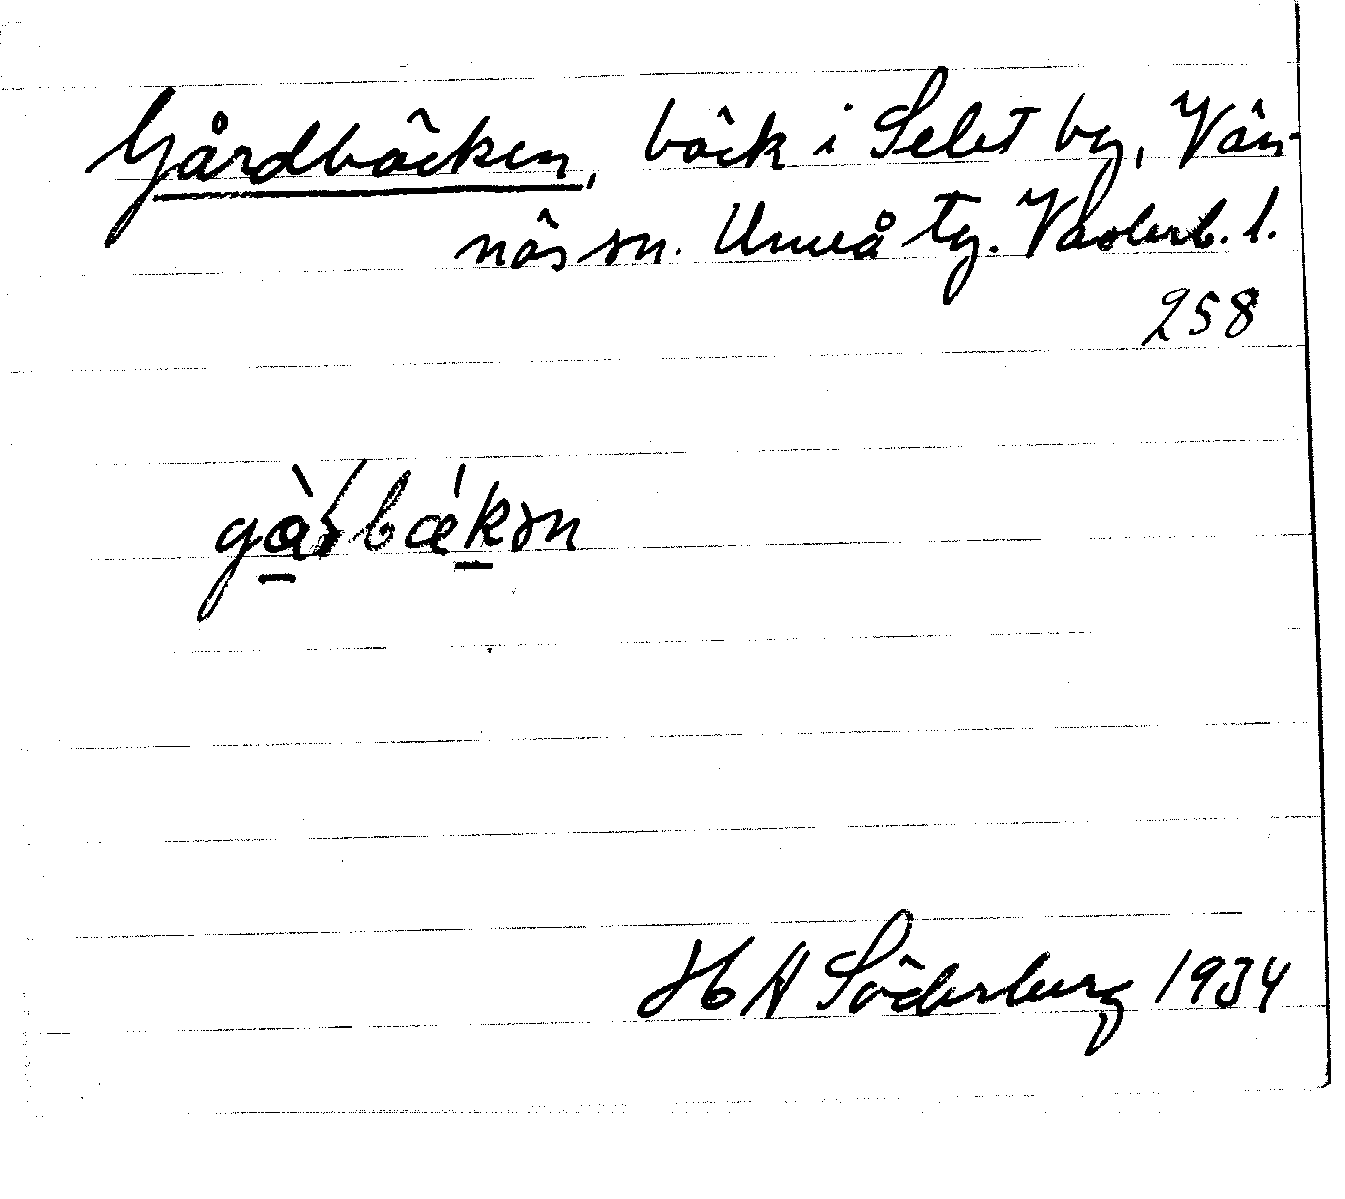 Gårdbäcken, bäck i Selet by, Vän-
näs sn. Umeå tg. Västerb. l.
258
H A Söderberg 1934